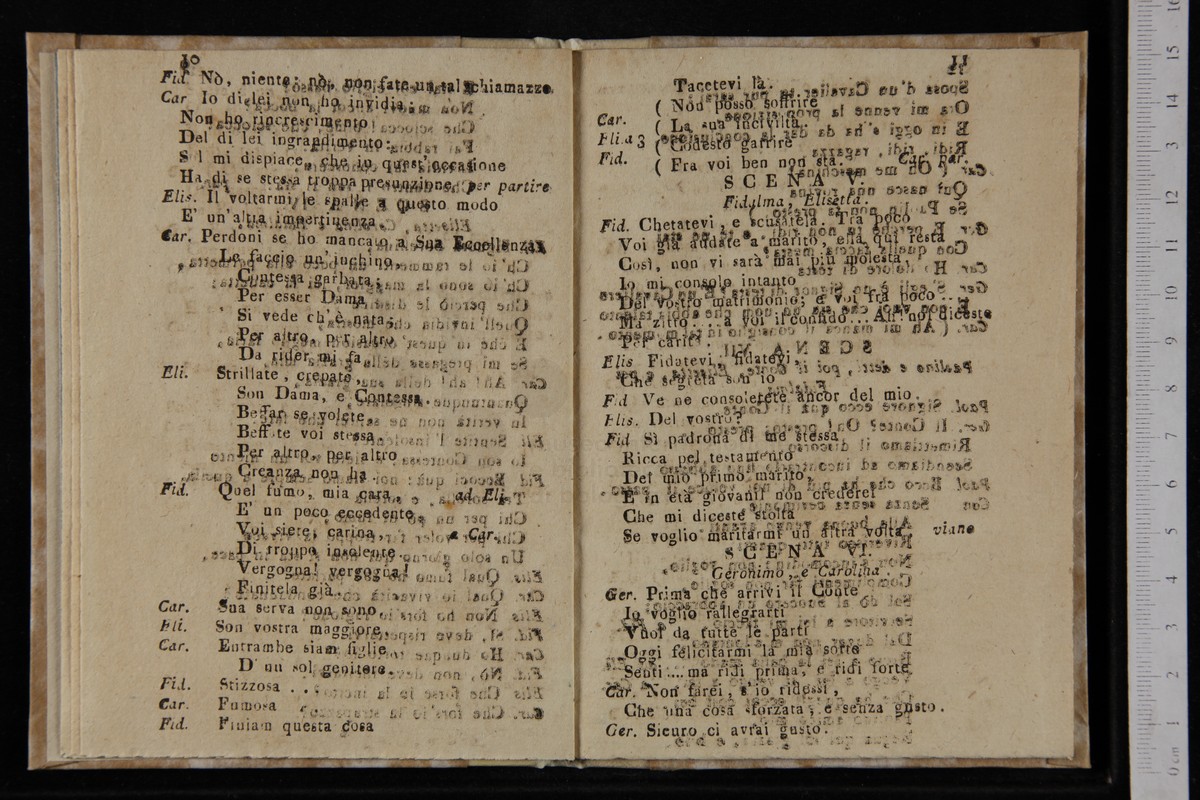 10
Fid. Nò, niente; nò, non fate un tal schiamazzo
Car Io di lei non ho invidia.
Non ho rincrescimento
Del di lei ingrandimento:
S l mi dispiace, che in quest'occasione
Ha di se stessa troppa presunzione. per partire
Elis. Il voltarmi le spalle a questo modo
E' un'altra impertinenza.
Car. Perdoni se ho mancato a Sua Eccellenza
Le faccio un'inchino,
Contessa garbata;
Per esser Dama
Si vede ch'è nata.
Per altro, per altro
Da rider mi fa
Eli. Strillate, crepate,
Son Dama, e Contessa.
Beffar se volete
Beff te voi stessa
Per altro, per altro
Creanza non ha.
Fid. Quel fumo, mia cara, ad Eli.
E' un poco eccedente
Voi siete, carina, a Car.
Di troppo insolente.
Vergogna! vergogna!
Finitela già.
Car. Sua serva non sono.
Eli. Son vostra maggiore
Car. Entrambe siam figlie
D' un sol genitore.
Fid. Stizzosa . .
Car. Fumosa
Fid. Finiam questa cosa
11
Tacetevi là.
( Non posso soffrire
Car. ( La sua inciviltà.
Eli. a 3 ( Codesto garrire
Fid. ( Fra voi ben non sta. Car. par.
SCENA V.
Fidalma, Elisetta.
Fid. Chetatevi, e scusatela. Tra poco
Voi già andate a marito, ella qui resta
Così, non vi sarà mai più molesta.
Io mi consolo intanto
Del vostro matrimonio; e voi fra poco . . .
Ma zitto . . . a voi il confido... Ah! nol diceste
Per carità.
Elis Fidatevi, fidatevi,
Che segreta son io
Fid Ve ne consolerete ancor del mio.
Elis. Del vostro?
Fid Sì padrona di me stessa
Ricca pel testamento
Del mio primo marito,
E in età giovanil non crederei
Che mi diceste stolta
Se voglio maritarmi un'altra volta. viano
SCENA VI.
Geronimo, e Carolina.
Ger. Prima che arrivi il Conte
Io voglio rallegrarti
Vuoi da tutte le parti
Oggi felicitarmi la mia sorte
Senti .... ma ridi prima, e ridi forte
Car. Non farei, s'io ridessi,
Che una cosa sforzata, e senza gusto.
Ger. Sicuro ci avrai gusto.